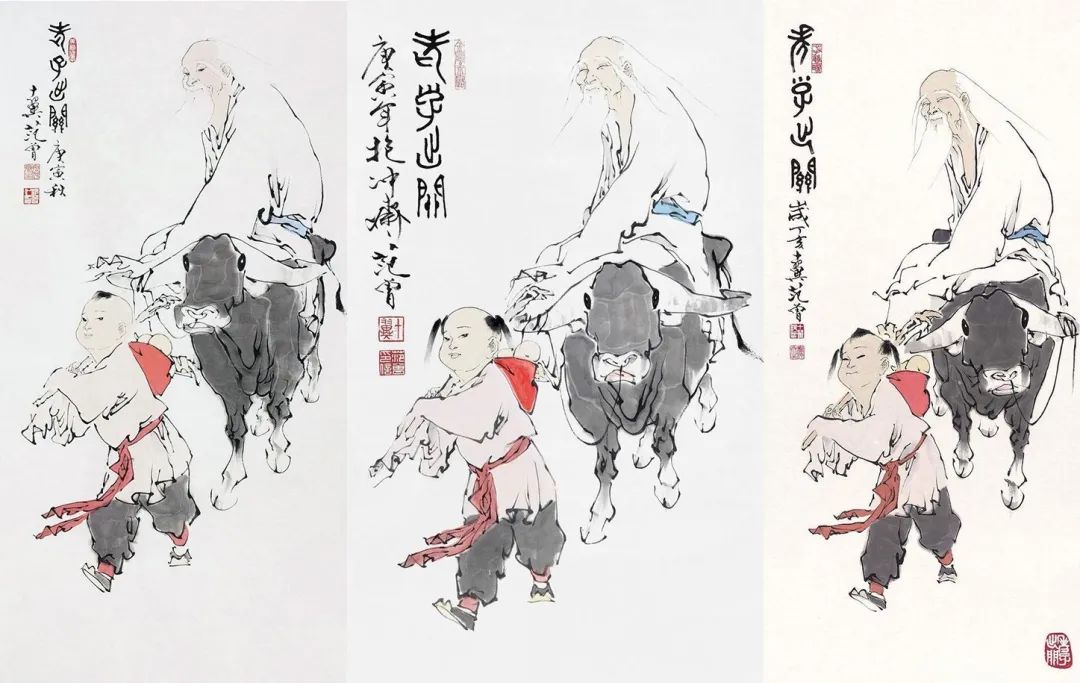 老子出關 庚寅秋
十翼范曾
老子出關
庚寅年抱冲齋范曾
十翼
老子出關 歲丁亥十翼范曾